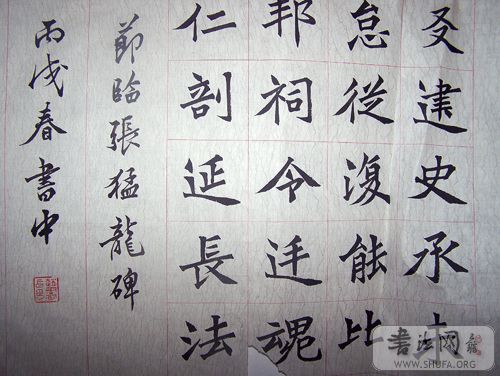 建史承
怠從復能比
邦祠令迁魂
仁剖延長法
節臨張猛龍碑
丙戌春書中
书法网
WWW.SHUFA.ORG